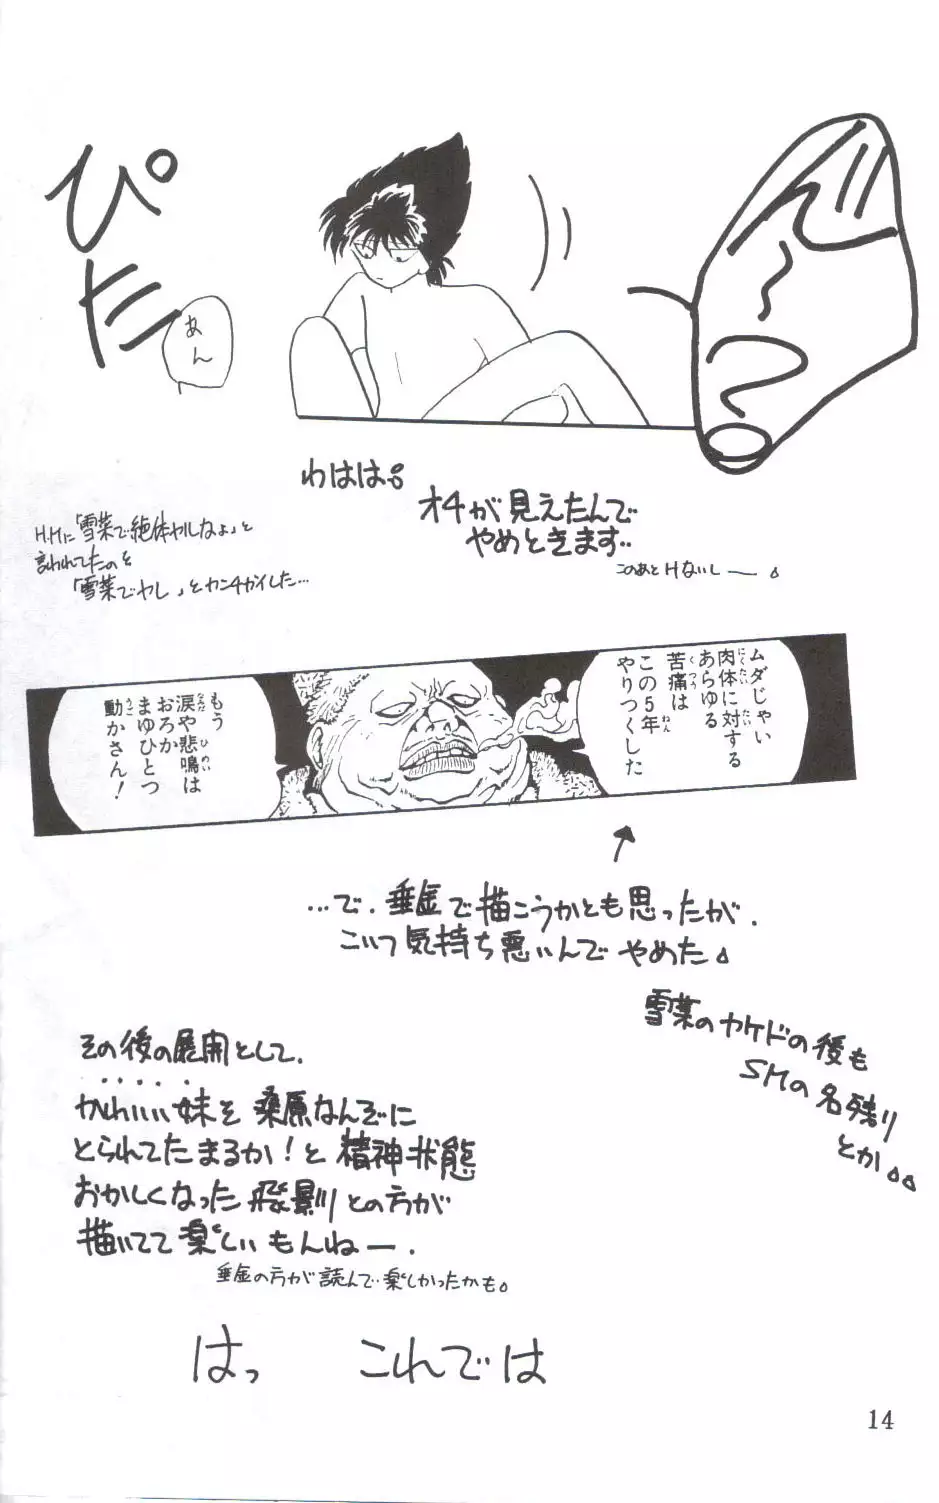 ぴた
あん
わはは。
オチが見えたんで
やめときます…
このあとHないしー。
H.Hに「雪菜で絶体ヤルなよ」と
言われてたのを
「雪菜でヤレ」とカンチガイした…
ムダじゃい
肉体に対する
あらゆる
苦痛は
この5年
やりつくした
もう
涙や悲鳴は
おろか
まゆひとつ
動かさん！
…で、垂金で描こうかとも思ったが、
こいつ気持ち悪いんでやめた。
雪菜のヤケドの後も
SMの名残り
とか。。
その後の展開として、
かわいい妹を桑原なんぞに
とられてたまるか！と精神状態
おかしくなった飛影とのの方が
描いてて楽しいもんねー。
垂金の方が読んで楽しかったかも。
はっ これでは
14